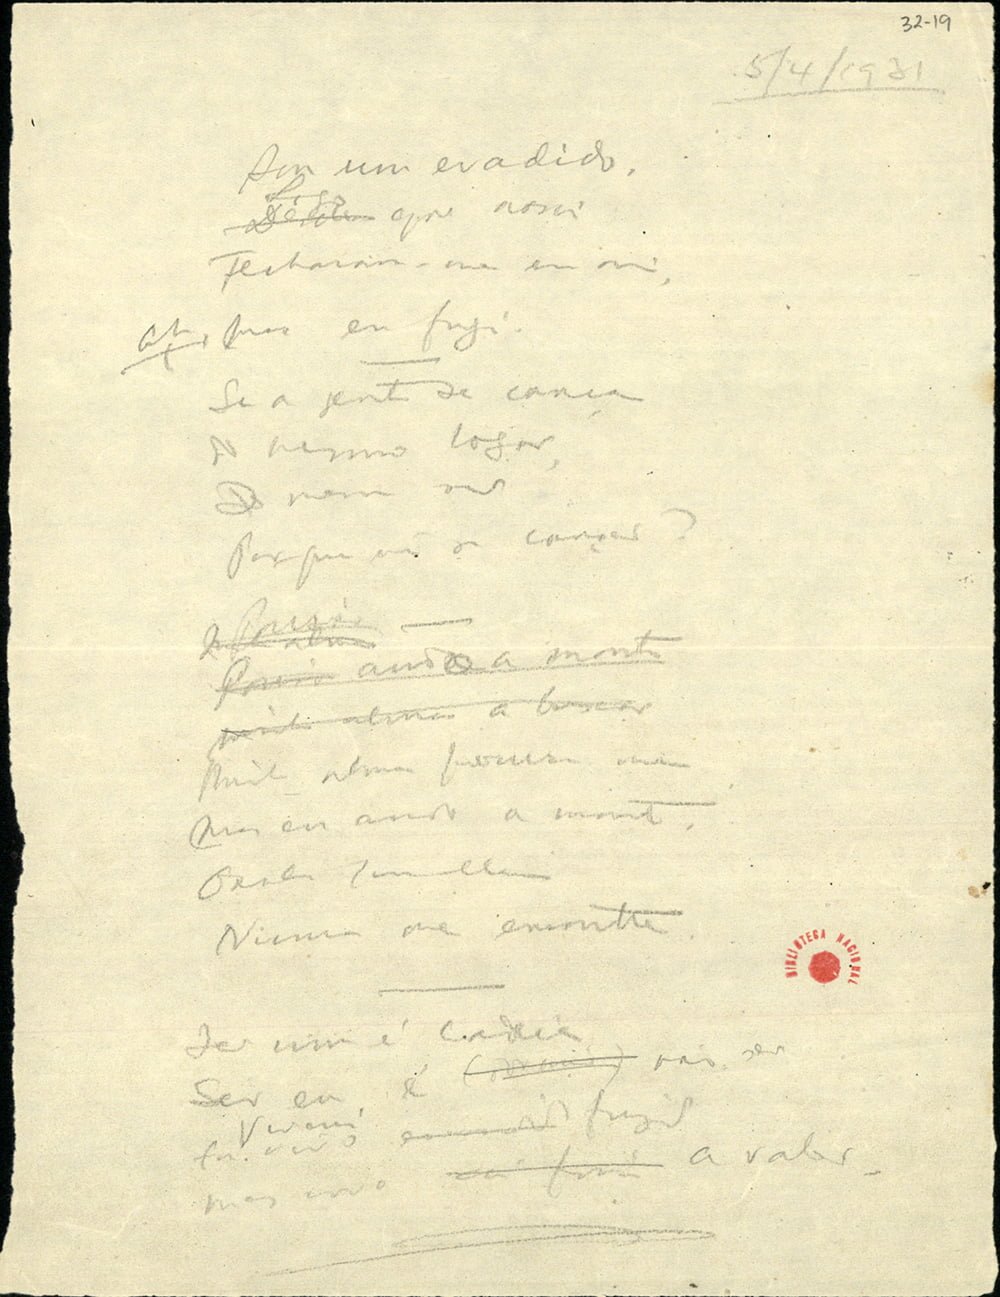 32-19
5/4/1931
Sou um evadido.
Logo
que nasci
Fecharam-me em mim,
Ah, mas eu fugi.
Se a gente se cança
Do mesmo logar,
Do mesmo ser
Porque não se cançar?
ando a monte
minha alma a buscar
Minha alma procura-me
Mas eu ando a monte,
Oxalá que ella
Nunca me encontre.
Ser um é cadeia
Ser eu é não ser
Viverei fugindo
mas vivo a valer.
BIBLIOTECA NACIONAL